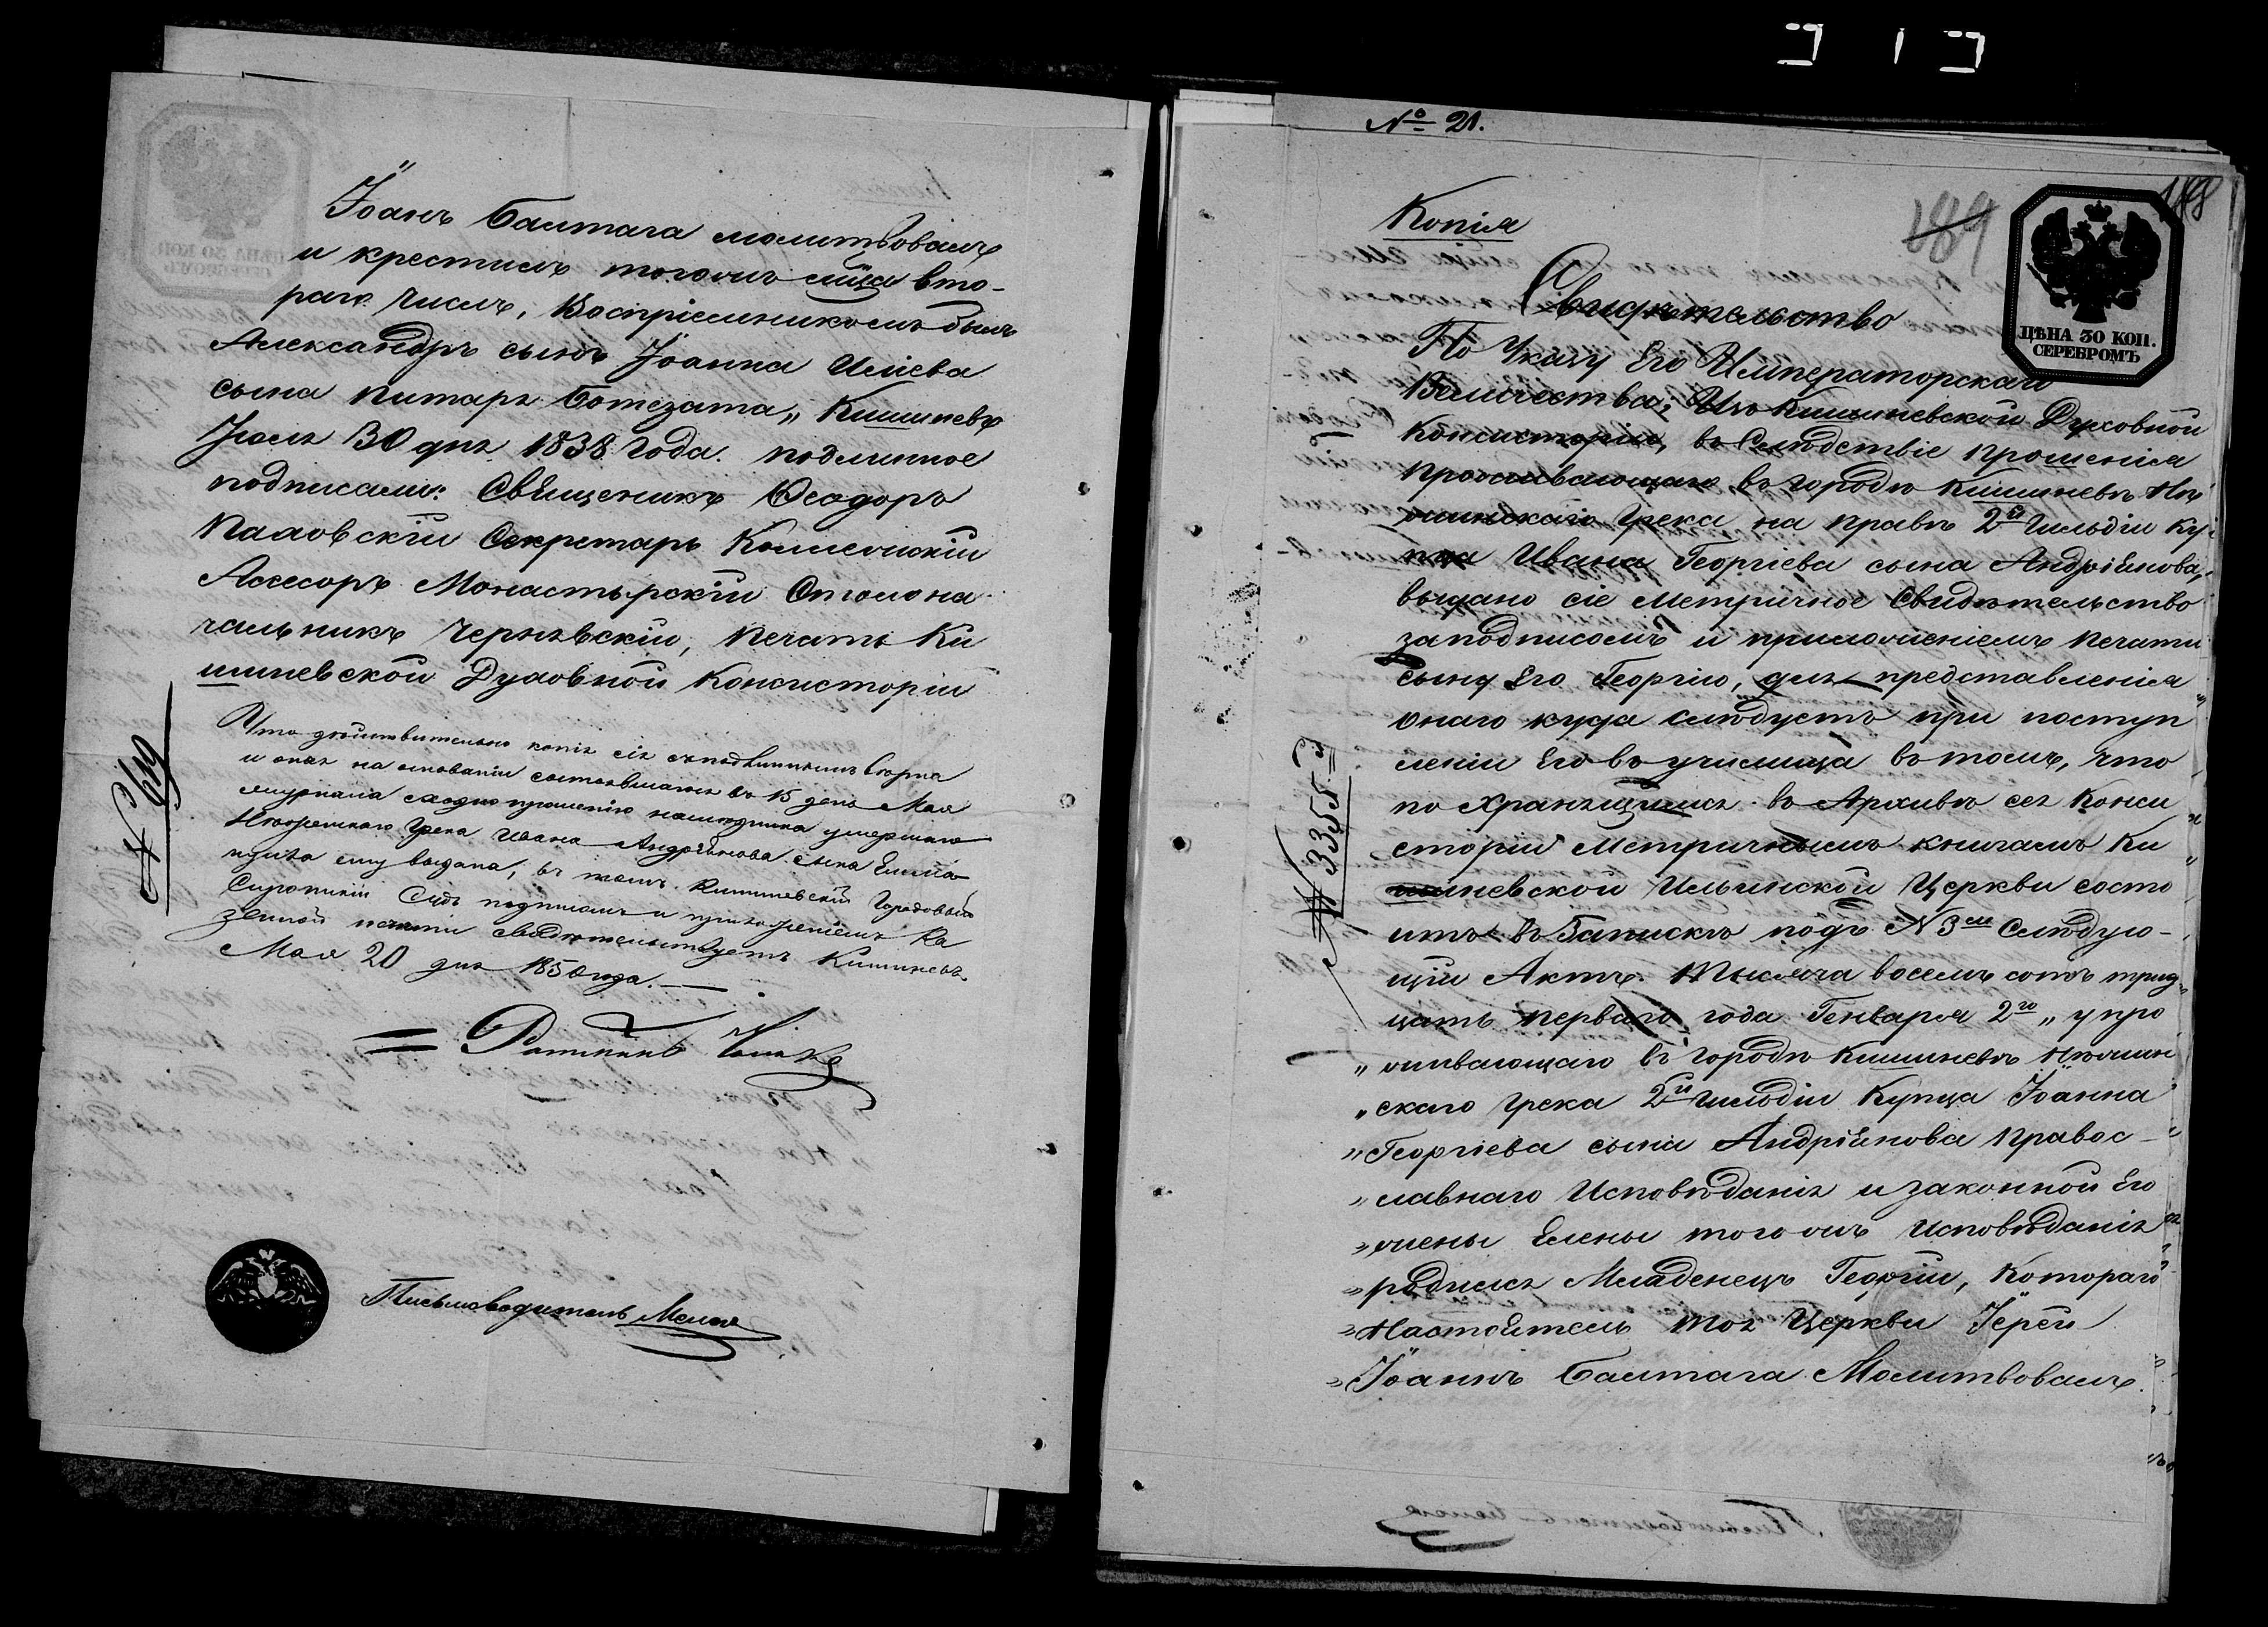 Іоанъ Балтага молитвовалъ
и крестилъ тогожъ мѣца вто-
раго числъ, Воспріемникомъ былъ
Александръ сынъ Іоанна Иліева
сына питарь Ботезата„ Кишиневъ
Іюля 30 дня 1838 года. подлинное
подписали: Священикъ Ѳеодоръ
Секретарь Коллежскій
Асесоръ Монастырскій Столона-
чальникъ Чернявскій, печать Ки
шиневской Духовной Консисторіи
Что дѣйствительно копія сія съ подлиннымъ вѣрна
и оная на основаніи состоявшагося въ 15 день Мая
журнала сходно прошенію наслѣдника умершаго
Нѣжинскаго Грека Ивана Андріянова сына
ему выдана, въ томъ Кишиневскій Городовый
Сиротскій Судъ подписомъ и приложеніемъ Ка
зенной печати свидѣтельствуетъ Кишиневъ.
Мая 20 дня 1850 года.
Письмоводитель
№ 619
№ 21.
189
188
Копія
ЦѢНА 30 КОП.
СЕРЕБРОМЪ
Свидѣтельство
По Указу Его Императорскаго
Величества; Изъ Кишиневской Духовной
Консисторіи, въ Слѣдствіе прошенія
проживающаго въ городѣ Кишиневѣ Нѣ
жинскаго Грека на правѣ 2й Гильдіи Ку-
пца Ивана Георгіева сына Андріянова,
выдано сіе Метричное Свидѣтельство
за подписомъ и приложеніемъ печати
сыну Его Георгію, для представленія
онаго куда слѣдуетъ при поступ
леніи Его въ училища въ томъ, что
по хранящимся въ Архивѣ сея Конси
сторіи Метричнымъ книгамъ Ки
шиневской Ильинской Церкви состо
итъ въ Запискѣ подъ № 3м Слѣдую-
щій Актъ. Тысяча восемь сотъ трид
цать перваго года Генваря 2го „ у про
„ живающаго въ городѣ Кишиневѣ Нѣжин
„ скаго Грека 2й Гилдіи Купца Іоанна
„ Георгіева сына Андріянова Правос-
„ лавнаго Исповѣданія и законной Его
„ жены Елены того жъ исповѣданія
„ родился Младенецъ Георгій, Котораго
„ Настоятель тоя Церкви Іерей
„ Іоаннъ Балтага Молитвовалъ
№ 3355